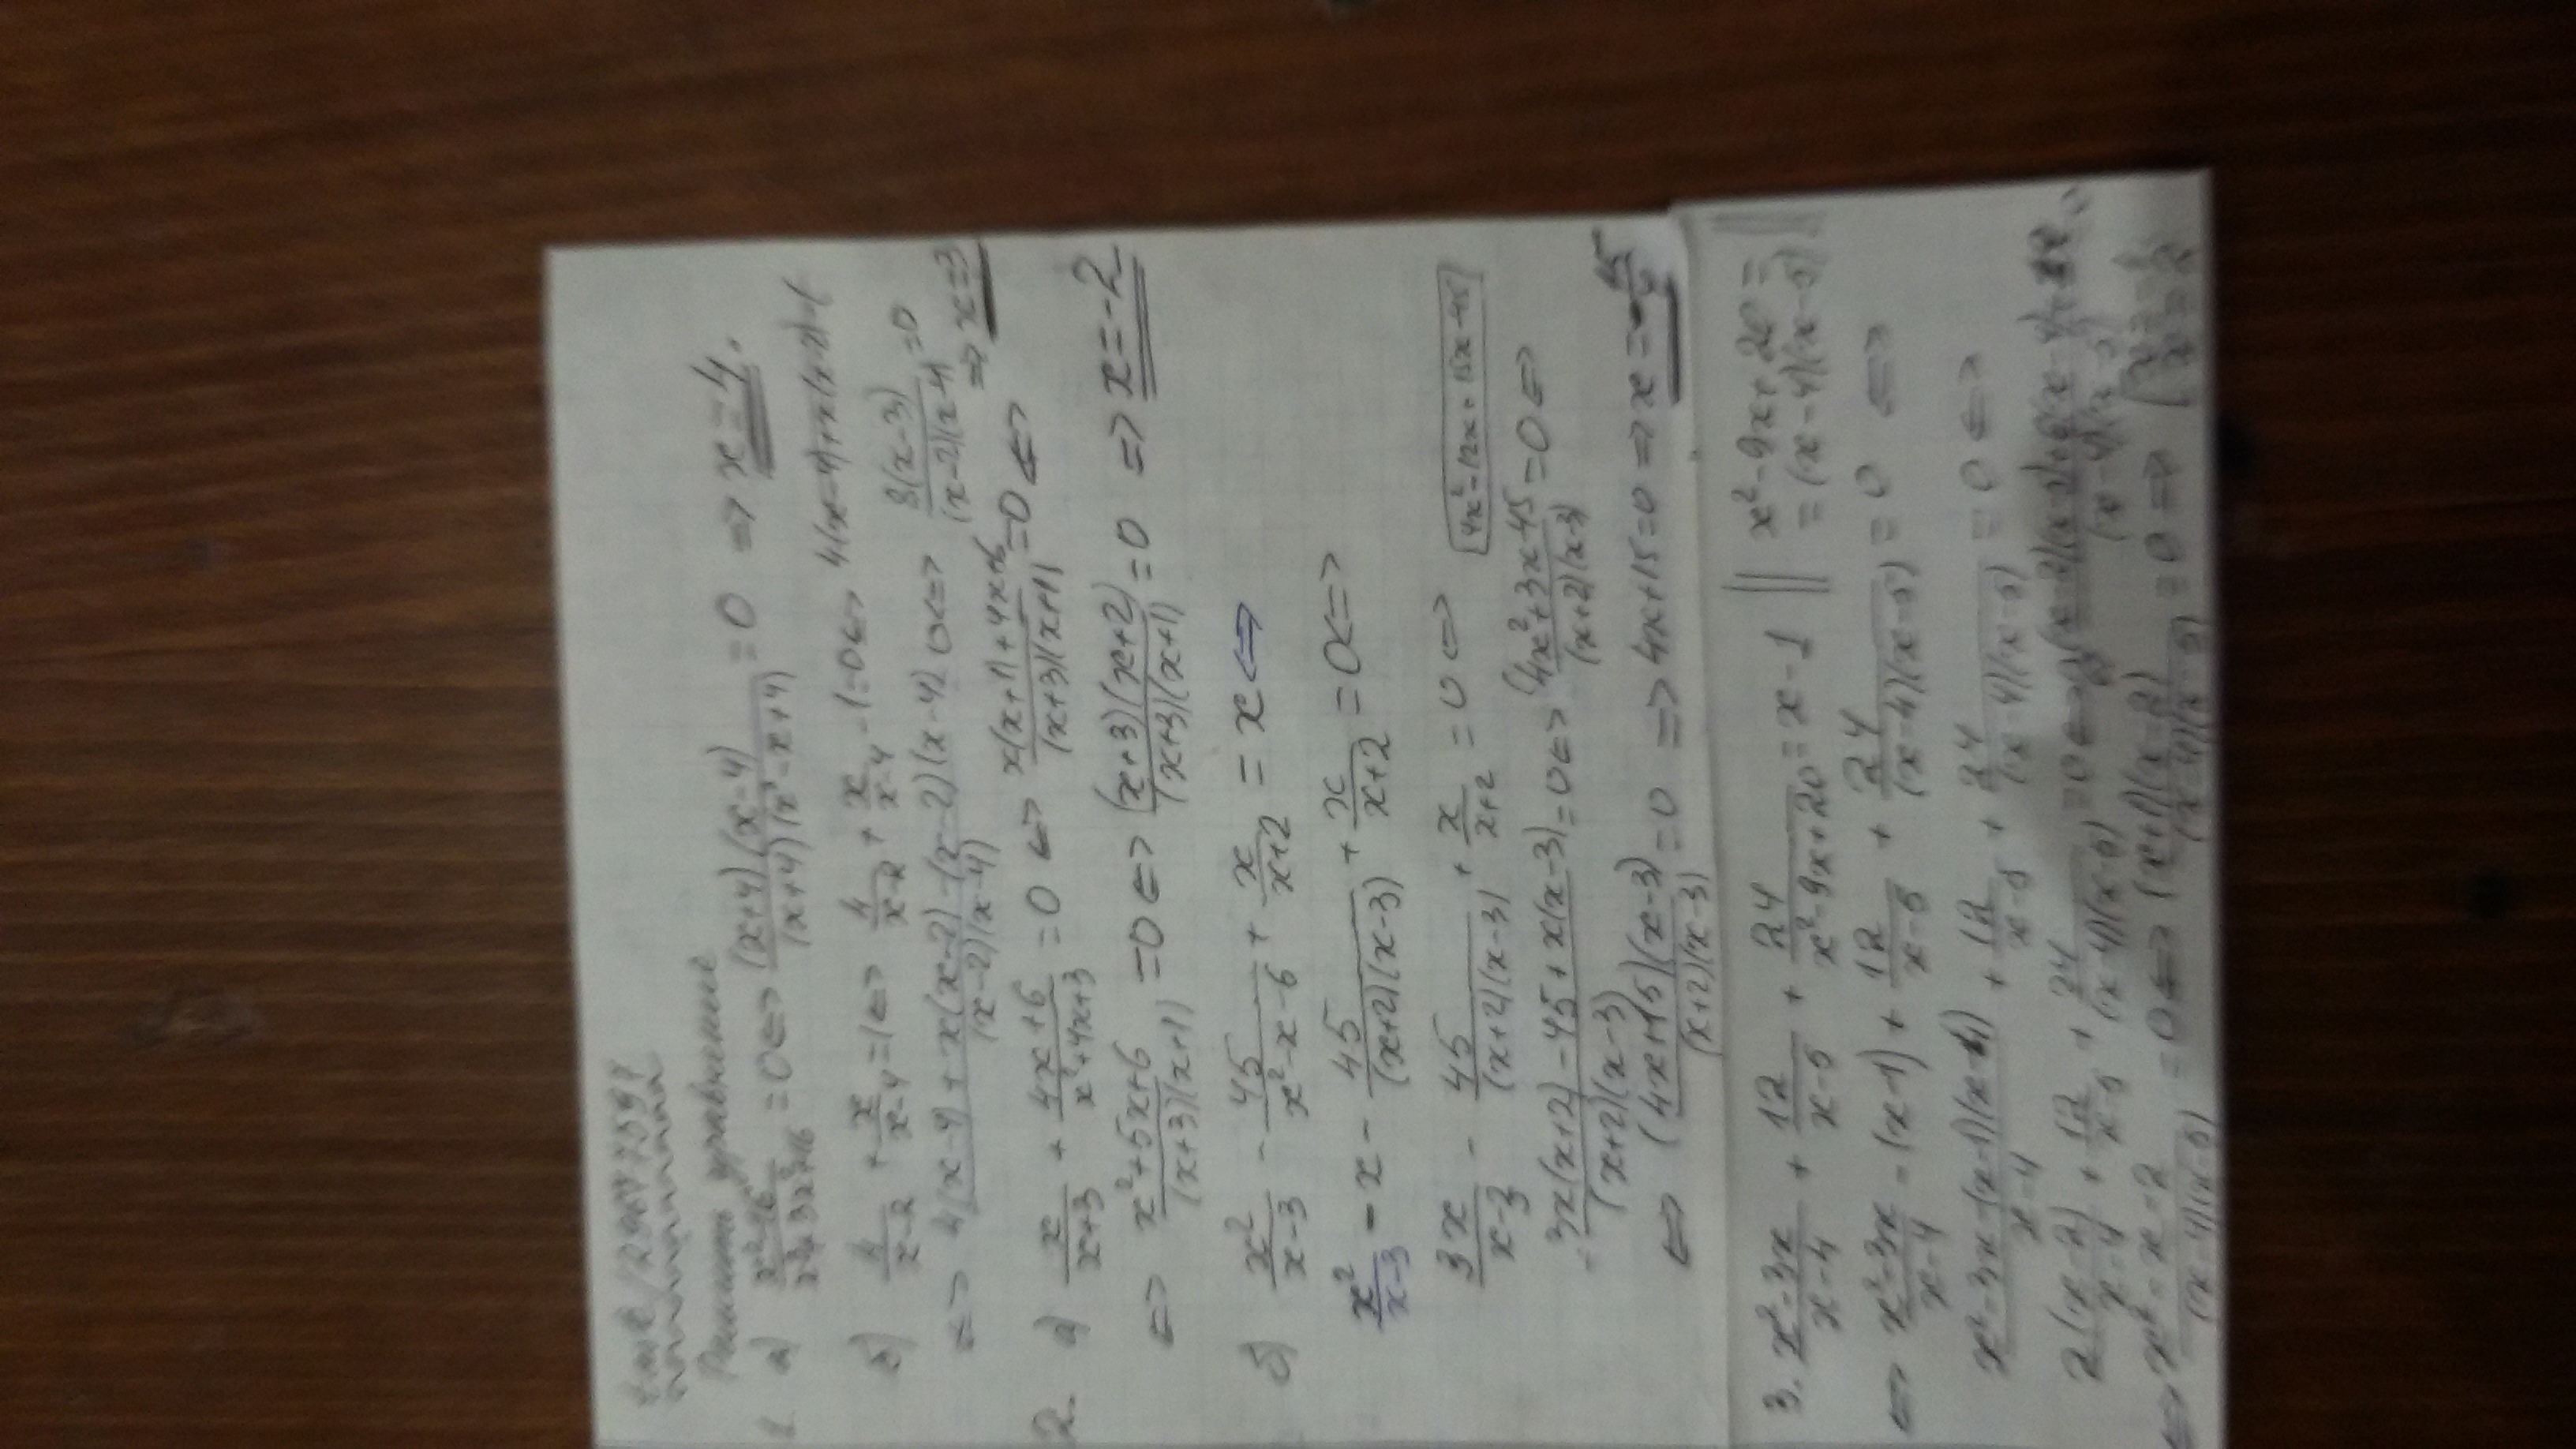 Решить уравнение
1 а) \frac{x²-16}{x³+3x²+16} = 0 <=> \frac{(x+4)(x-4)}{(x+4)(x²-x+4)} = 0 => x=4.
б) \frac{4}{x-2} + \frac{x}{x-4} = 1 <=> \frac{4}{x-2} + \frac{x}{x-4} - 1 = 0 <=>
<=> \frac{4(x-4)+x(x-2)-(x-2)(x-4)}{(x-2)(x-4)} 0 <=> \frac{8(x-3)}{(x-2)(x-4)} = 0
=> x=3
2. а) \frac{x}{x+3} + \frac{4x+6}{x²+4x+3} = 0 <=> \frac{x(x+1)+4x+6}{(x+3)(x+1)} = 0 <=>
<=> \frac{x²+5x+6}{(x+3)(x+1)} = 0 <=> \frac{(x+3)(x+2)}{(x+3)(x+1)} = 0 => x=-2
б) \frac{x²}{x-3} - \frac{45}{x²-x-6} + \frac{x}{x+2} = x <=>
\frac{x²}{x-3} - x - \frac{45}{(x+2)(x-3)} + \frac{x}{x+2} = 0 <=>
\frac{3x}{x-3} - \frac{45}{(x+2)(x-3)} + \frac{x}{x+2} = 0 <=> 4x²-12x+15x-45
\frac{3x(x+2)-45+x(x-3)}{(x+2)(x-3)} = 0 <=> \frac{4x²+3x-45}{(x+2)(x-3)} = 0 <=>
<=> \frac{(4x+15)(x-3)}{(x+2)(x-3)} = 0 => 4x+15=0 => x=-\frac{15}{4}
3. \frac{x²-3x}{x-4} + \frac{12}{x-5} + \frac{24}{x²-9x+20} = x-1 || x²-9x+20 =
= (x-4)(x-5) ||
<=> \frac{x²-3x}{x-4} - (x-1) + \frac{12}{x-5} + \frac{24}{(x-4)(x-5)} = 0 <=>
\frac{x²-3x-(x-1)(x-4)}{x-4} + \frac{12}{x-5} + \frac{24}{(x-4)(x-5)} = 0 <=>
\frac{2(x-2)}{x-4} + \frac{12}{x-5} + \frac{24}{(x-4)(x-5)} = 0 <=>
<=> \frac{x²-x-2}{(x-4)(x-5)} = 0 <=> \frac{(x+1)(x-2)}{(x-4)(x-5)} = 0 =>